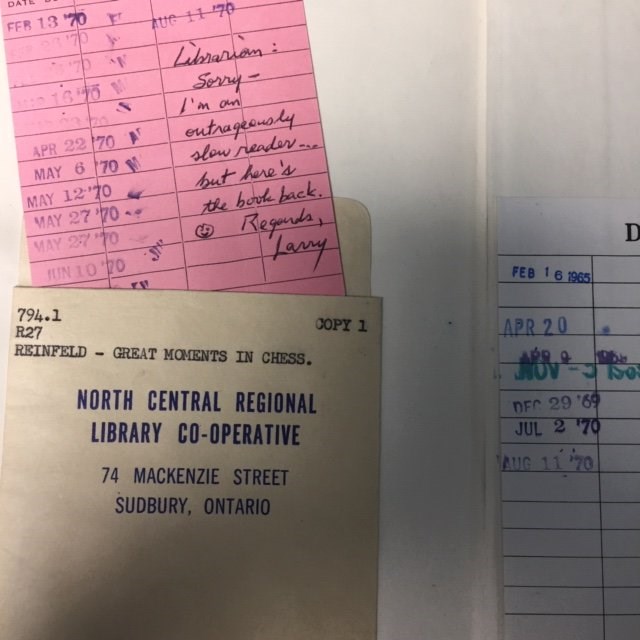 DATE
FEB 13 '70
AUG 11 '70
Librarian:
Sorry -
I'm an
outrageously
slow reader...
but here's
the book back.
Regards,
Larry
16 '70
APR 22 '70
MAY 6 '70
MAY 12 '70
MAY 27 '70
MAY 27 '70
JUN 10 '70
794.1
R27
COPY 1
REINFELD - GREAT MOMENTS IN CHESS.
NORTH CENTRAL REGIONAL
LIBRARY CO-OPERATIVE
74 MACKENZIE STREET
SUDBURY, ONTARIO
D
FEB 16 1965
APR 20
APR 9
NOV - 5
DEC 29 '69
JUL 2 '70
AUG 11 '70